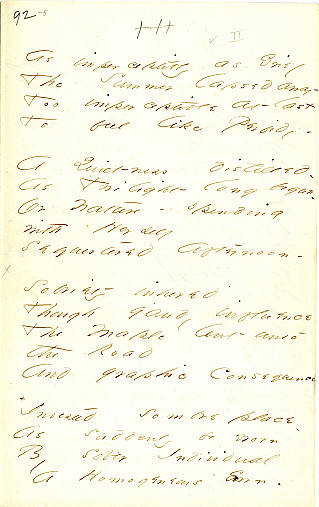 92-5
+++
v II
As imperceptibly as Grief
The Summer lapsed away
Too imperceptible at last
To feel like Perfidy -
A Quietness distilled
As Twilight long begun
Or Nature - spending
with Herself
Sequestered Afternoon -
Sobriety inhered
Though gaudy influence
The Maple lent unto
the Road
And graphic Consequence
Invested sombre place
As suddenly be worn
By sober Individual
A Homogeneous Gown.